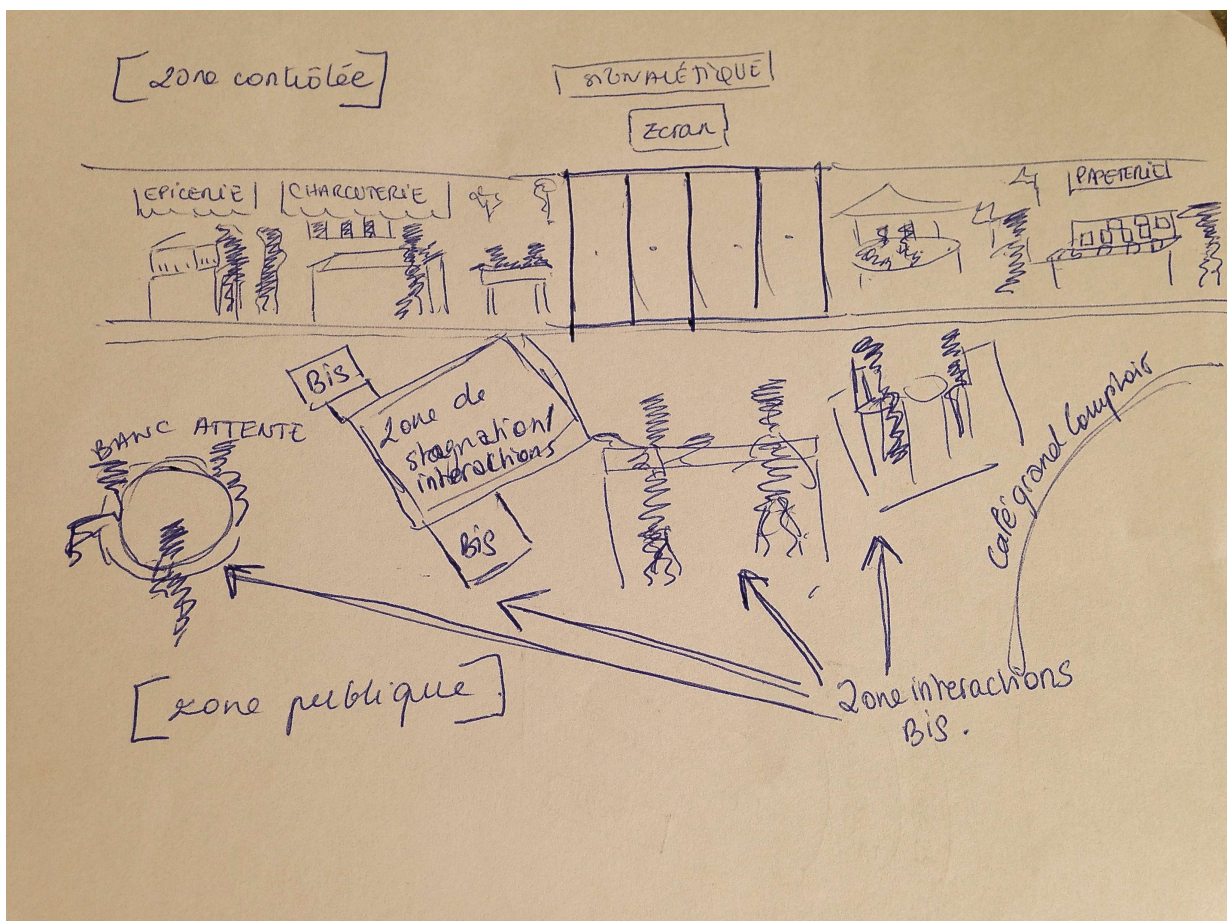 [zone contrôlée]
SIGNALÉTIQUE
Ecran
EPICERIE
CHARCUTERIE
PAPETERIE
Bis
Zone de
stagnation/
interactions
BANC ATTENTE
Bis
café grand Comptoir
[zone publique]
Zone interactions
Bis.